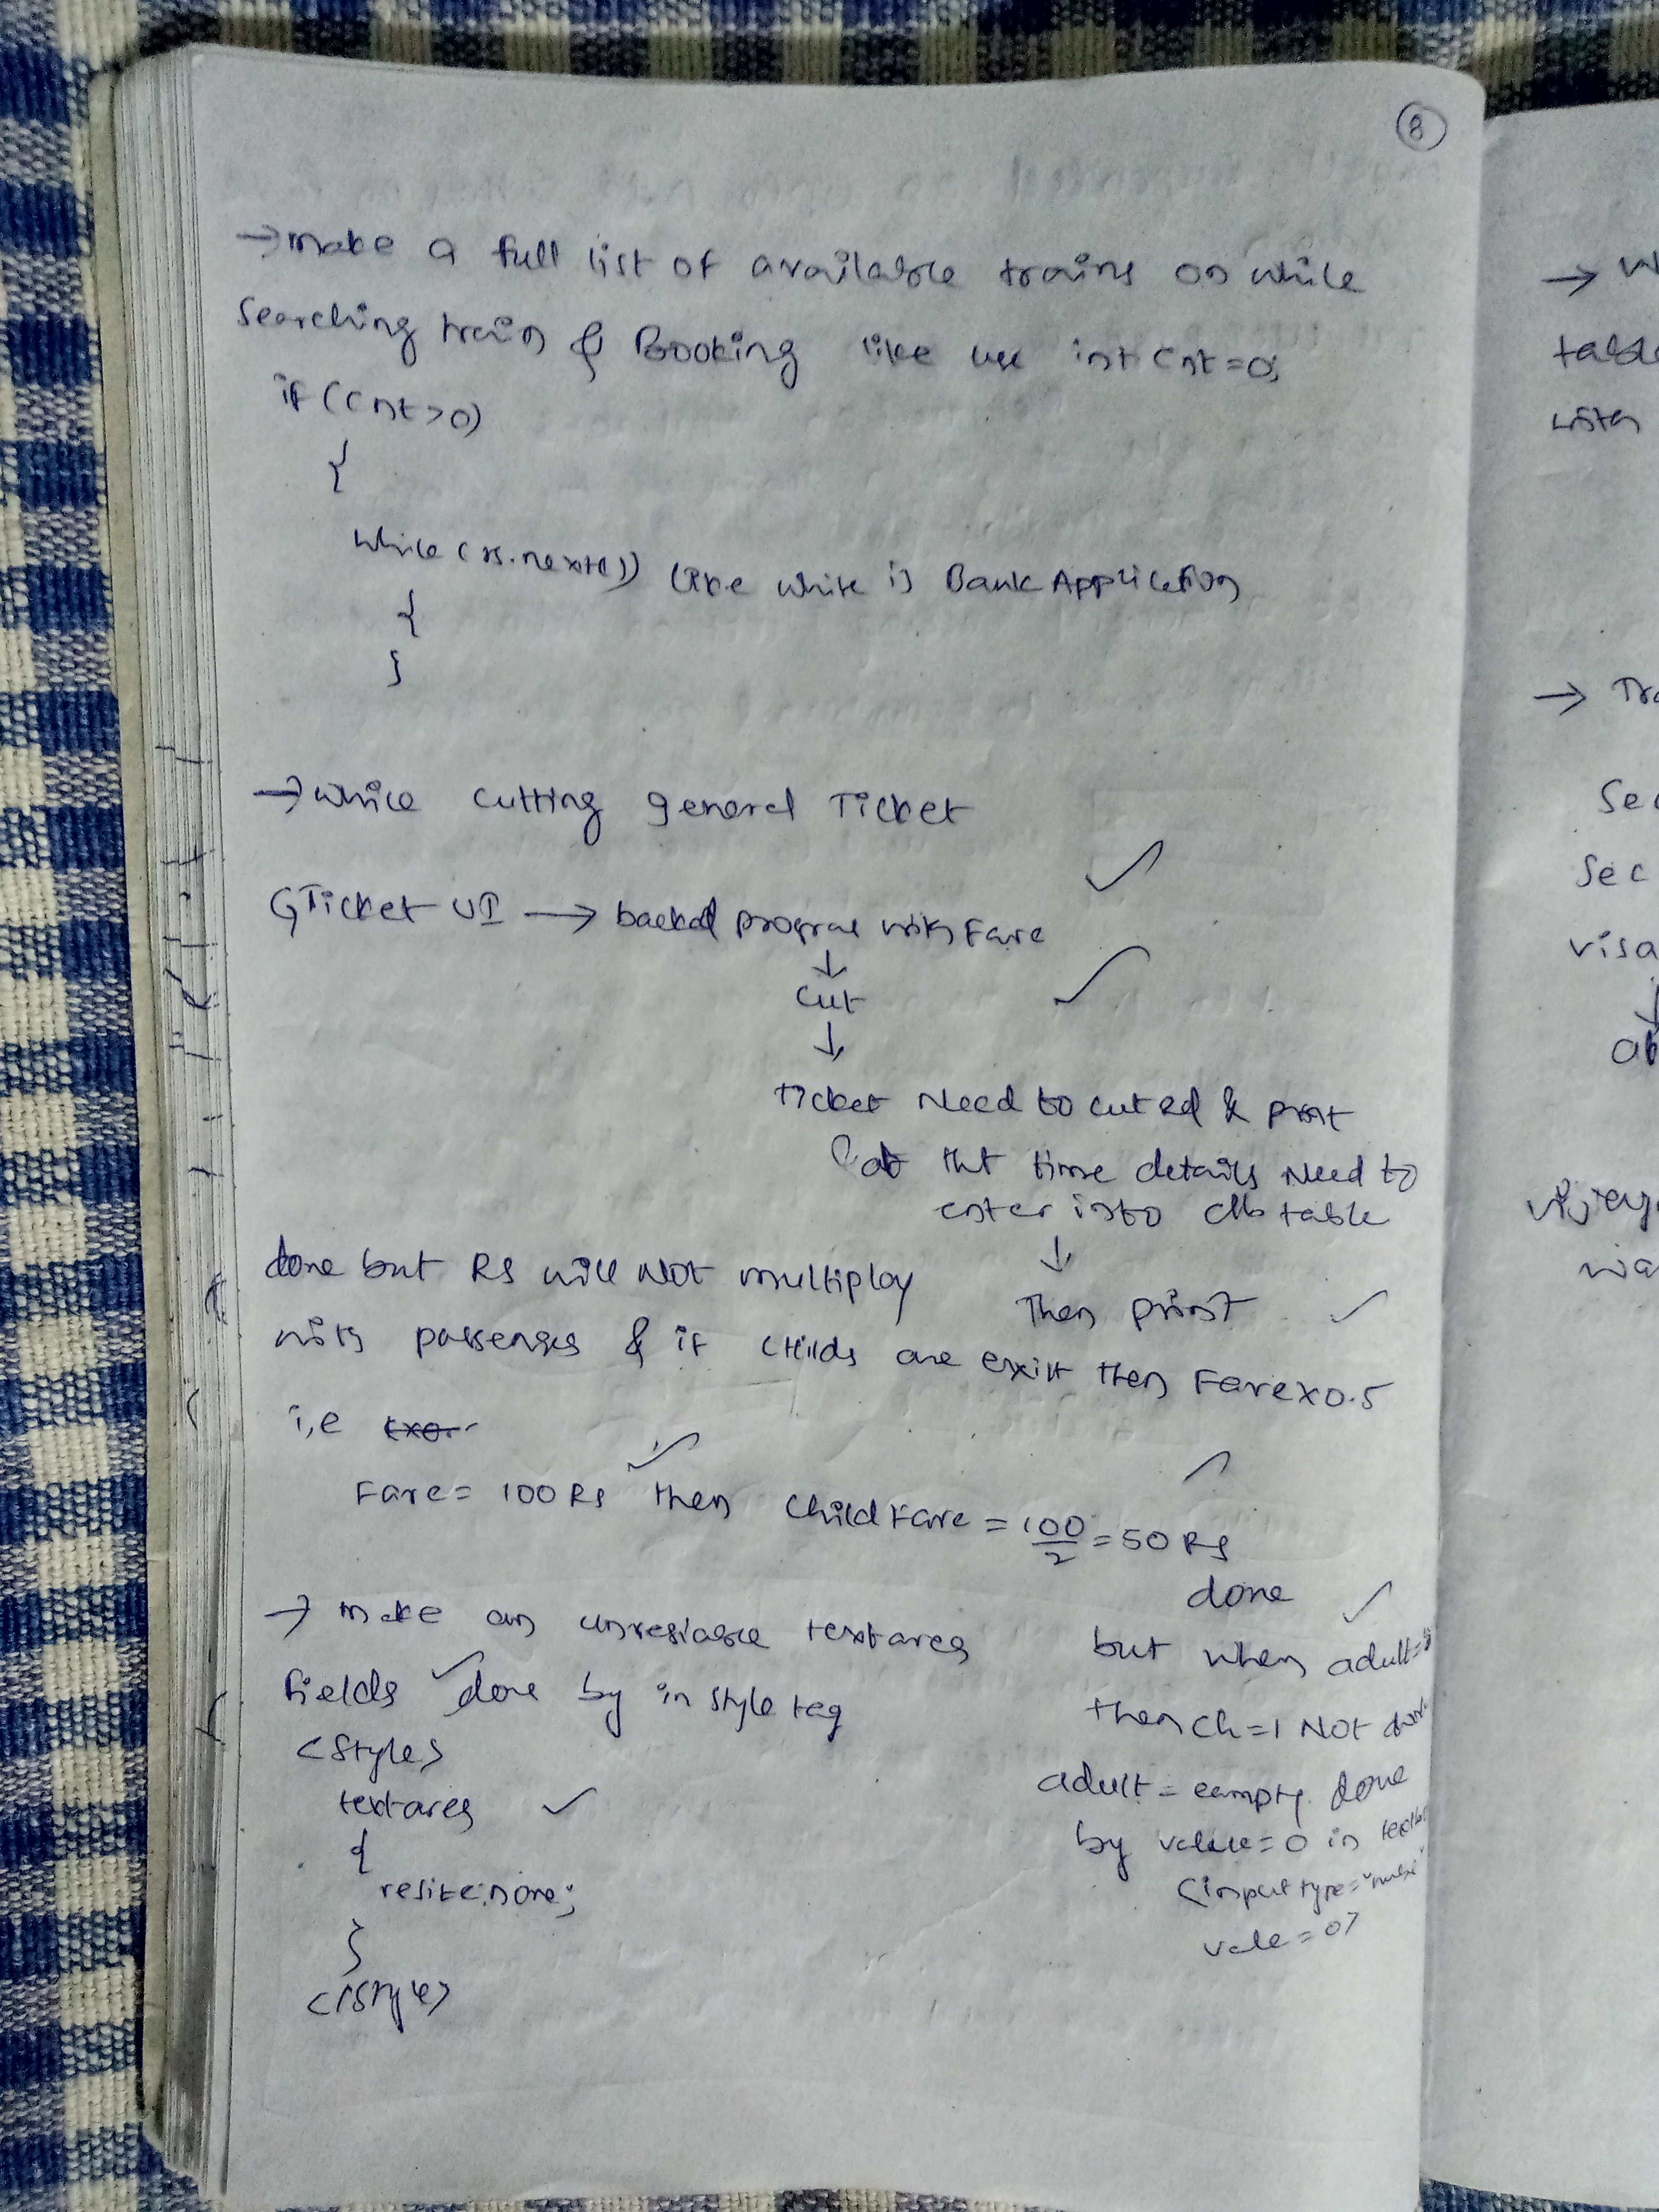 8
→ make a full list of available trains on while
searching train & Booking like use int cnt=0;
if (cnt>0)
{
while (rs.next()) like while is Bank Application
{
}
→ while cutting general Ticket
GTicket UI → backed program with Fare
↓
cut
↓
Ticket Need to cut ed & print
at tht time details Need to
enter into db table
↓
Then print
done but RS will NOT multiploy
with passenges & if childs are exist then Fare x 0.5
i,e
Fare = 100 Rs then child Fare = 100/2 = 50 Rs
done
→ make an unresiable textarea
fields done by in style tag
<style>
textarea
{
resize:none;
}
</style>
but when adult=
then ch=1 NOT
adult = eampty. done
by value=0 in
<input type="
vale=0>
→
table
with
→ Tra
Sec
Sec
visa
↓